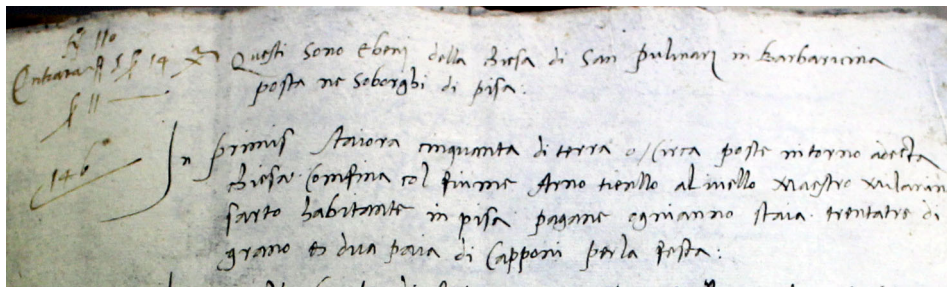 110
Questi sono e beni della chiesa di San pulinari in barbaricina
posta ne soborghi di pisa.
146
In primis staiora cinquanta di terra o / circa poste intorno a detta
chiesa. Confina col fiume Arno tiello a livello maestro
sarto habitante in pisa pagane ogni anno staia trentatre di
grano et dua paia di Capponi per la festa: